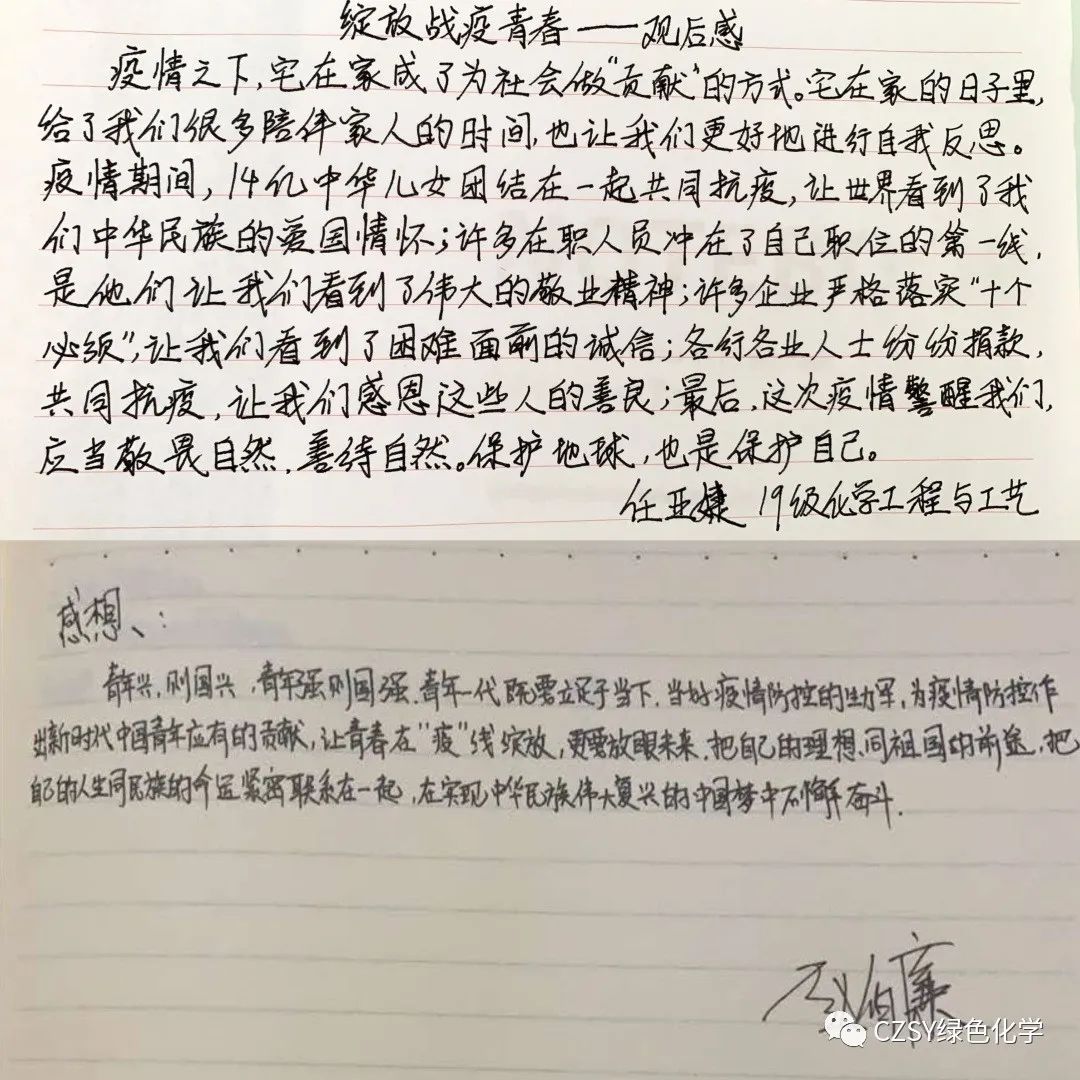 绽放战疫青春——观后感
疫情之下,宅在家成了为社会做“贡献”的方式。宅在家的日子里,
给了我们很多陪伴家人的时间,也让我们更好地进行自我反思。
疫情期间,14亿中华儿女团结在一起共同抗疫,让世界看到了我
们中华民族的爱国情怀;许多在职人员冲在了自己职位的第一线,
是他们让我们看到了伟大的敬业精神;许多企业严格落实“十个
必须”,让我们看到了困难面前的诚信;各行各业人士纷纷捐款,
共同抗疫,让我们感恩这些人的善良;最后,这次疫情警醒我们,
应当敬畏自然,善待自然。保护地球,也是保护自己。
任亚婕 19级化学工程与工艺
感想、:
青年兴,则国兴,青年强则国强.青年一代既要立足于当下,当好疫情防控的生力军,为疫情防控作
出新时代中国青年应有的贡献,让青春在“疫”线绽放,更要放眼未来,把自己的理想同祖国的前途,把
自己的人生同民族的命运紧密联系在一起,在实现中华民族伟大复兴的中国梦中不懈奋斗.
CZSY绿色化学